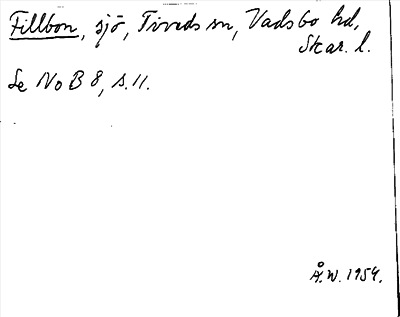 Fillbon, sjö, Tiveds sn, Vadsbo hd,
Skar. l.
Se No B 8, s. 11.
Å.W. 1954.